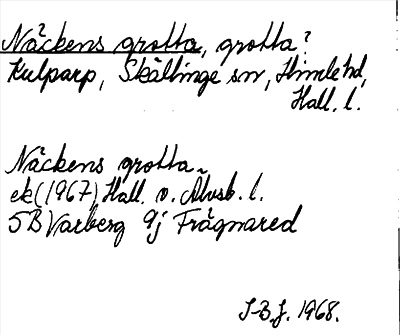 Näckens grotta, grotta?
Kulparp, Skällinge sn, Himle hd,
Hall. l.
Näckens grotta
ek (1967) Hall. o. Älvsb. l.
5B Varberg 9j Frägnared
S-B.J. 1968.